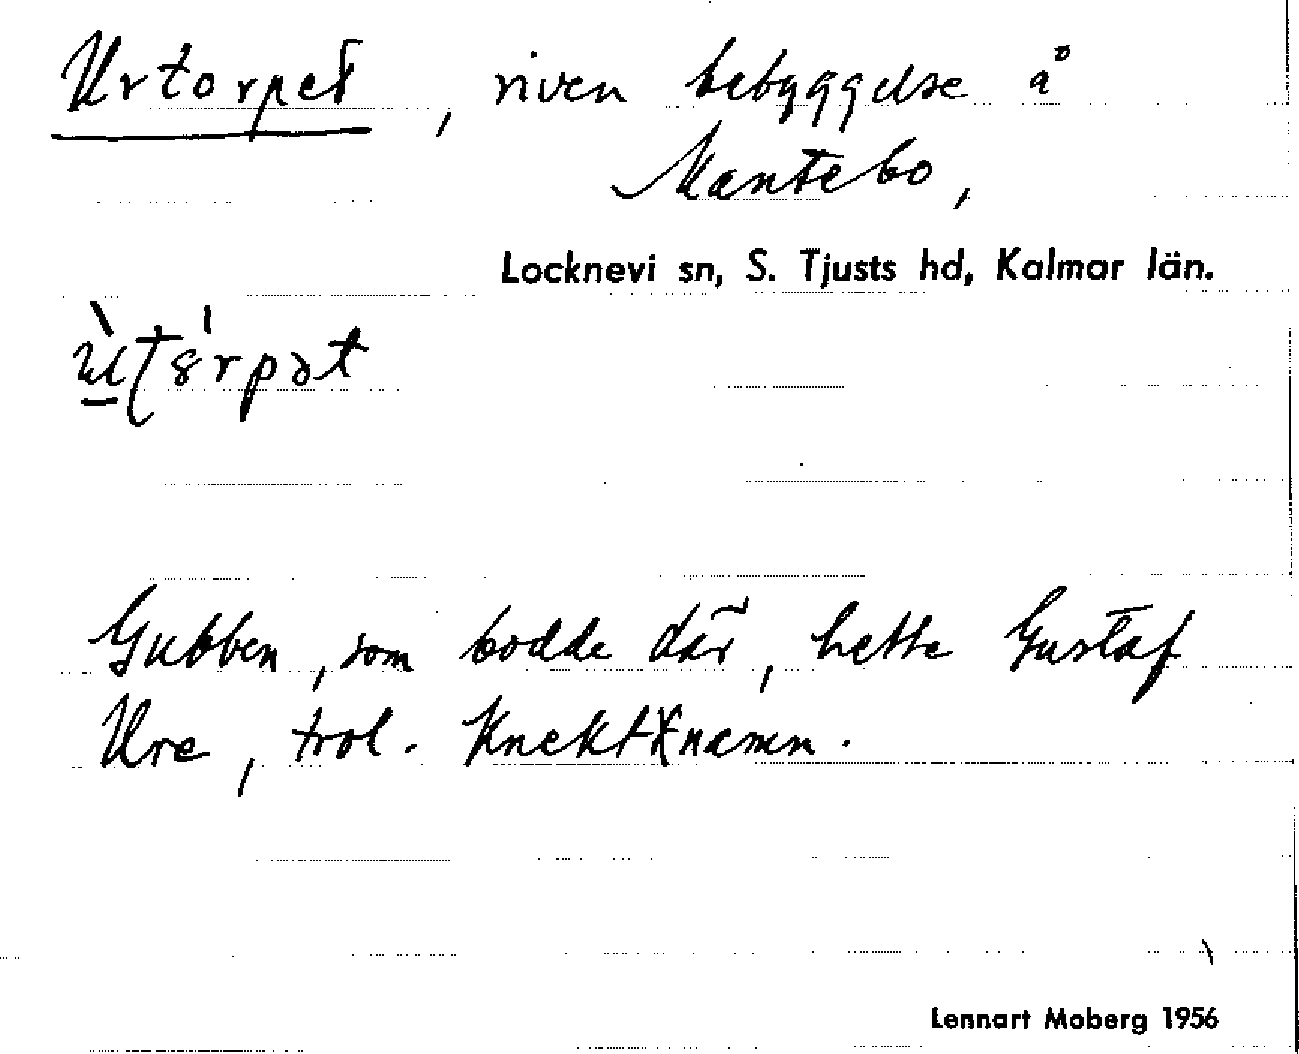 Urtorpet, riven bebyggelse å
Mantebo,
Locknevi sn, S. Tjusts hd, Kalmar län.
Gubben, som bodde där, hette Gustaf
Ure, trol. knektnamn.
Lennart Moberg 1956